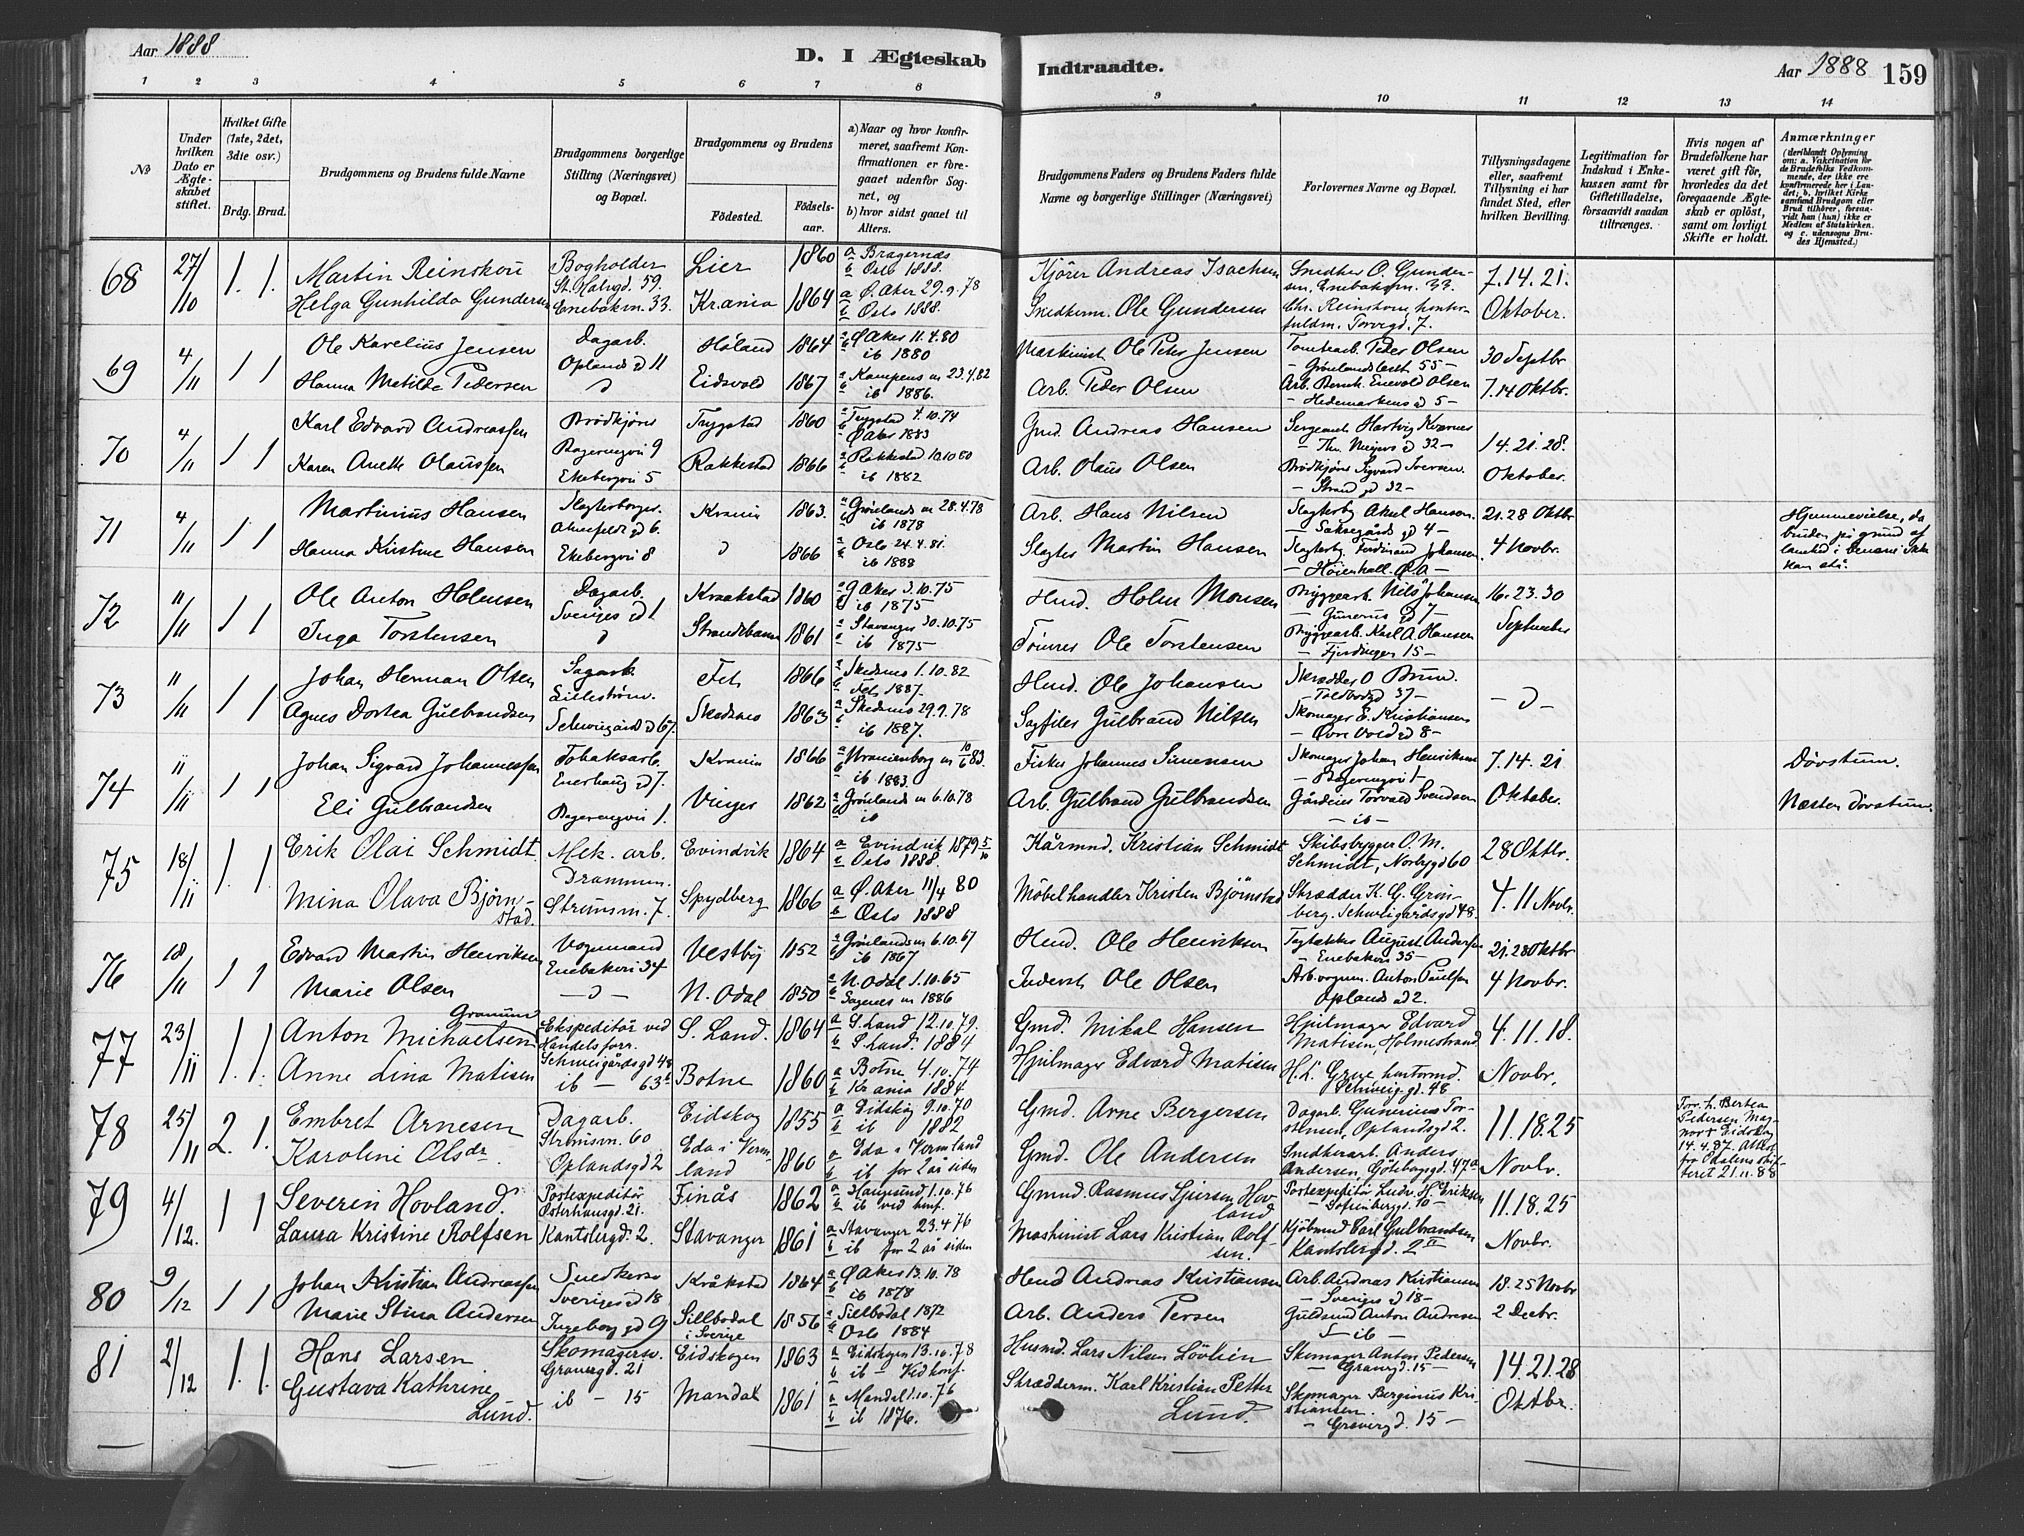 Aar 1888
D. I Ægteskab Indtraadte.
Aar 1888 159
1 2 3 4 5 6 7 8 9 10 11 12 13 14
No
Under hvilken Dato er Ægteskabet stiftet.
Hvilket Gifte (1ste, 2det, 3die osv.)
Brdg. Brud.
Brudgommens og Brudens fulde Navne
Brudgommens borgerlige Stilling (Næringsvei) og Bopæl.
Brudgommens og Brudens
Födested. Födselsaar.
a) Naar og hvor konfirmeret, saafremt Konfirmationen er foregaaet udenfor Sognet, og
b) hvor sidst gaaet til Alters.
Brudgommens Faders og Brudens Faders fulde Navne og borgerlige Stillinger (Næringsvei)
Forlovernes Navne og Bopæl.
Tillysningsdagene eller, saafremt Tillysning ei har fundet Sted, efter hvilken Bevilling.
Legitimation for Indskud i Enkekassen samt for Giftetilladelse, forsaavidt saadan tiltrænges.
Hvis nogen af Brudefolkene har været gift för, hvorledes da det foregaaende Ægteskab er oplöst, samt om lovligt Skifte er holdt.
Anmærkninger
(deriblandt Oplysning om: a. Vakcination for de Brudefolks Vedkommende, der ikke ere konfirmerede her i Landet; b. hvilket Kirkesamfund Brudgom eller Brud tilhörer, forsaavidt han (hun) ikke er Medlem af Statskirken. og c. udensogns Brudes Hjemsted.)
68 27/10 1. 1. Martin Reinskou Bogholder St. Halvgd. 59. Lier 1860 a Bragernæs b Oslo 1888. Kjörer Andreas Isachsen Snedker O. Gundersen, Enebakvn. 33. 7. 14. 21.
Helga Gunhilda Gundersen Enebakvn. 33. Krania 1864 a Ø. Aker 29.9.78 b Oslo 1888. Snedkerm. Ole Gundersen Chr. Reinskou, kontorfuldm. Torvegd. 7. Oktober.
69 4/11 1 1 Ole Karelius Jensen Dagarb. Oplands gd 11 Høland 1864 a Ø Aker 11.4.80 b ib 1880 Maskinist Ole Peter Jensen Tomtearb. Peder Olsen – Grønlandsleret 55 – 30 Septbr.
Hanna Matilde Pedersen d Eidsvold 1867 a Kampens m 23.4.82 b ib 1886. Arb. Peder Olsen Arb. Bernh. Enevold Olsen – Hedemarkens gd 5 – 7. 14 Oktbr.
70 4/11 1 1 Karl Edvard Andreassen Brødkjører Vaalerengvei 9 Trygstad 1860 a Trygstad 4.10.74 b Ø Aker 1883 Gmd. Andreas Hansen Sergeant Hartvig Kværnes – Thv. Meyers gd 32 – 14. 21. 28.
Karen Anette Olaussen Ekebergvei 5 Rakkestad 1866 a Rakkestad 10.10 80 b ib 1882 Arb. Olaus Olsen Brødkjører Sigvard Iversen. – Strand gd 32 – Oktober.
71 4/11 1 1 Martinius Hansen Slagterborger. gd 6. Krania 1863. a Grønlands m 28.4.78 b ib 1878 Arb. Hans Nilsen Slagterby Aksel Hanson. – Saksegårds gd 4 – 21. 28 Oktbr
Hanna Kristine Hansen Ekebergvei 8 d 1866 a Oslo 24.4.81. b ib 1888 Slagter Martin Hansen Slagterby Ferdinand Johansen – Høienhall. Ø. A – 4 Novbr.
Hjemmevielse, da bruden på grund af lamhed i benene ikke kan stå.
72 11/11 1 1 Ole Anton Holmsen Dagarb. Sveriges gd 1 Kraakstad 1860 a Ø Aker 3.10.75 b ib 1875 Husmd. Holm Monsen Bryggearb. Nils Johansen – Gunerius gd 7 – 16. 23. 30
Inga Torstensen d Strandebarm 1861 a Stavanger 30.10.75 b ib 1875 Tømrer Ole Torstensen Bryggearb. Karl A. Hansen – Fjerdingen 15 – September
73 11/11 1 1 Johan Herman Olsen Sagarb. Lillestrøm. Fet 1866 a Skedsmo 1.10.82 b Fets 1887. Husmd. Ole Johansen Skrædder O Bruun. – Toldbodgd 37 – – d –
Agnes Dortea Gulbrandsen Schweigård gd 67. Skedsmo 1863 a Skedsmo 29.9.78 b ib 1887. Sagfiler Gulbrand Nilsen Skomager E. Kristiansen – Øvre Vold gd 8 –
74 11/11 1 1 Johan Sigvard Johannessen Tobaksarb. Enerhaug gd 7. Krania 1866 a Uranienborg m 10/6 83. b ib 1883. Fisker Johannes Simensen Skomager Johan Henriksen – Vaalerengvei 1 – 7. 14. 21. Døvstum.
Eli Gulbrandsen Vaalerengvei 1. Vinger 1862 a Grønlands m 6.10.78 b ib Arb. Gulbrand Gulbrandsen Gårdeier Torvald Svendsen – ib – Oktober. Næsten døvstum.
75 18/11 1. 1. Erik Olai Schmidt Mek. arb. Drammen. Evindvik 1864 a Evindvik 1879 5/10 b Oslo 1888. Kårmnd. Kristian Schmidt Skibsbygger O. M. Schmidt, Norbygd 60 28 Oktbr.
Mina Olava Bjørnstad. Strømsvn. 7. Spydberg 1866 a Ø. Aker 11/4 80 b Oslo 1888 Möbelhandler Kristen Bjørnstad Skrædder K. G. Grönberg. Schweigårdsgd 48. 4. 11 Novbr.
76 18/11 1 1 Edvard Martin Henriksen Vognmand Enebakvei 34 Vestby 1852 a Grønlands m 6.10.67 b ib 1867 Husmd. Ole Henriksen Tagtækker August Andersen – Enebakvei 35 – 21. 28 Oktbr
Marie Olsen – d – N. Odal 1850 a N. Odal 1.10.65 b Sagenes m 1886 Inderst Ole Olsen Arb. vognm. Anton Paulsen Oplands gd 2. 4 Novbr.
77 23/11 1. 1. Anton Michaelsen Granum Ekspeditør ved Handelsforr. Schweigårdsgd 48 S. Land. 1864 a S. Land 12.10.79. b S. Land. 1884 Gmd. Mikal Hansen Hjulmager Edvard Matisen, Holmestrand 4. 11. 18.
Anne Lina Matisen ib – 63 Botne 1860 a Botne 4.10.74 b Krania 1884. Hjulmager Edvard Matisen H. L. Grue, kontormd. Schweig gd. 48 Novbr.
78 25/11 2. 1. Embret Arnesen Dagarb. Strømsvn. 60 Eidskog 1855 a Eidskog 9.10.70 b ib 1882 Gmd. Arne Bergersen Dagarb. Gunerius Torstensen, Oplandsgd 2. 11. 18. 25
Karoline Olsdr Oplandsgd 2 Eda i Vermland 1860 a Eda i Vermland b ib for 2 år siden Gmd. Ole Andersen Snedkerarb. Anders Andersen, Göteborggd. 47a Novbr.
For. h. Bertea Pedersen Magnor i Eidskog 14.4.87. Attest fra Odalens skifteret 21.11.88
79 4/12. 1 1 Severin Hovland. Postexpeditör Østerhausgd. 21. Finås 1862 a Haugesund 1.10.76 b ib ved konf. Gmnd. Rasmus Hovland Postexpeditör Ludv. H. Eriksen – Sofienbergd. 10 – 11. 18. 25
Laura Kristine Rolfsen Kantslergd. 2. Stavanger 1861 a Stavanger 23.4.76 b ib for 2 år siden Maskinist Lars Kristian Rolfsen. Kjöbmnd Carl Gulbrandsen Kantslergd. 2 Novbr.
80 9/12 1 1 Johan Kristian Andreassen Snedkersv. Sveriges gd 18 Kråkstad 1864 a Ø Aker 13.10.78 b ib 1878 Husmd Andreas Kristiansen Arb. Andreas Kristiansen – Sveriges gd 18 – 18. 25 Novbr
Marie Stina Andersen Ingeborg gd 9 Sillbodal i Sverige 1856 a Silbodal 1872 b Oslo 1884 Arb. Anders Persen Guldsmd Anton Andresen – ib – 2 Decbr.
81 2/12 1. 1. Hans Larsen Skomagersv. Graversgd. 21 Eidskogen 1863 a Eidskogen 13.10.78 b ib – Ved konf. Husmd. Lars Nilsen Lövlien Skomager Anton Pedersen – Gravergd. 15 – 14. 21. 28
Gustava Kathrine Lund. ib – 15 Mandal 1861 a Mandal 1.10.76 b ib 1876. Skrædderm. Karl Kristian Petter Lund. Skomager Berginus Kristiansen. – Gravergd. 15 – Oktbr.